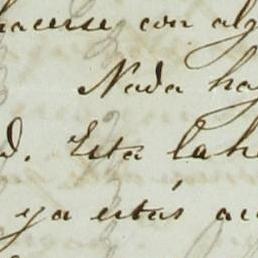 hacerse con alg
Nada ha
d. Esta la h
ya estás au